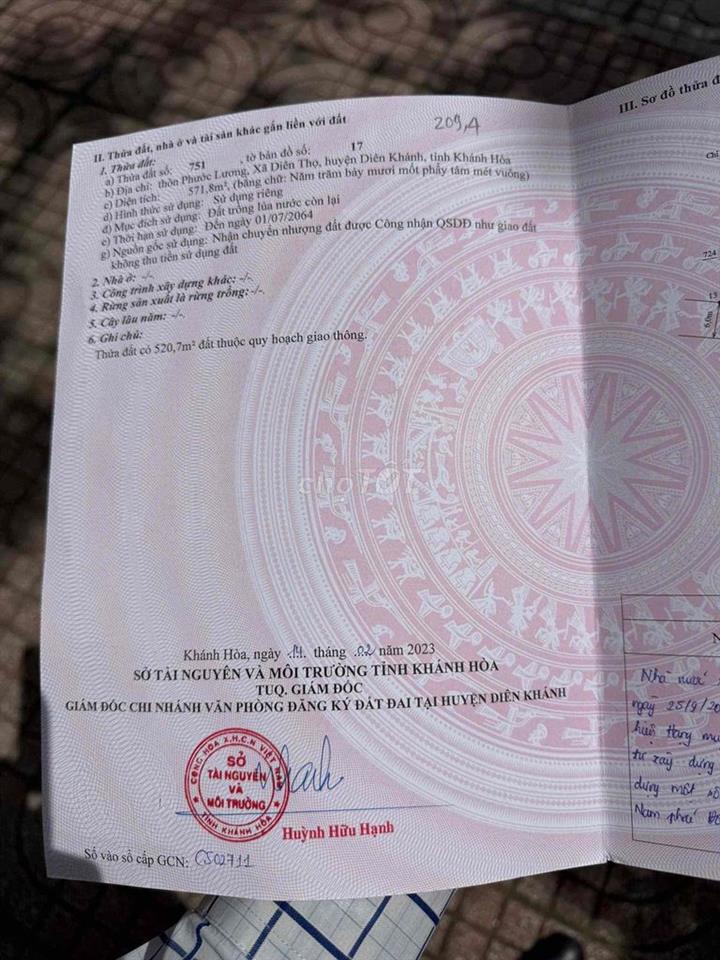 209,4
II. Thửa đất, nhà ở và tài sản khác gắn liền với đất
1. Thửa đất:
a) Thửa đất số: 751 , tờ bản đồ số: 17
b) Địa chỉ: thôn Phước Lương, Xã Diên Thọ, huyện Diên Khánh, tỉnh Khánh Hòa
c) Diện tích: 571,8m², (bằng chữ: Năm trăm bảy mươi mốt phẩy tám mét vuông)
d) Hình thức sử dụng: Sử dụng riêng
đ) Mục đích sử dụng: Đất trồng lúa nước còn lại
e) Thời hạn sử dụng: Đến ngày 01/07/2064
g) Nguồn gốc sử dụng: Nhận chuyển nhượng đất được Công nhận QSDĐ như giao đất
không thu tiền sử dụng đất
2. Nhà ở: -/-.
3. Công trình xây dựng khác: -/-.
4. Rừng sản xuất là rừng trồng: -/-.
5. Cây lâu năm: -/-.
6. Ghi chú:
Thửa đất có 520,7m² đất thuộc quy hoạch giao thông.
chợTỐT
Khánh Hòa, ngày 14 tháng 02 năm 2023
SỞ TÀI NGUYÊN VÀ MÔI TRƯỜNG TỈNH KHÁNH HÒA
TUQ. GIÁM ĐỐC
GIÁM ĐỐC CHI NHÁNH VĂN PHÒNG ĐĂNG KÝ ĐẤT ĐAI TẠI HUYỆN DIÊN KHÁNH
CỘNG HÒA X.H.C.N VIỆT NAM
SỞ
TÀI NGUYÊN
VÀ
MÔI TRƯỜNG
TỈNH KHÁNH HÒA
Huỳnh Hữu Hạnh
Số vào sổ cấp GCN: CS02711
III. Sơ đồ thửa đ
724
13
6,0m
Nhà nước
ngày 25/9/20
hiện hạng mụ
tư xây dựng
dựng một số
Nam phía